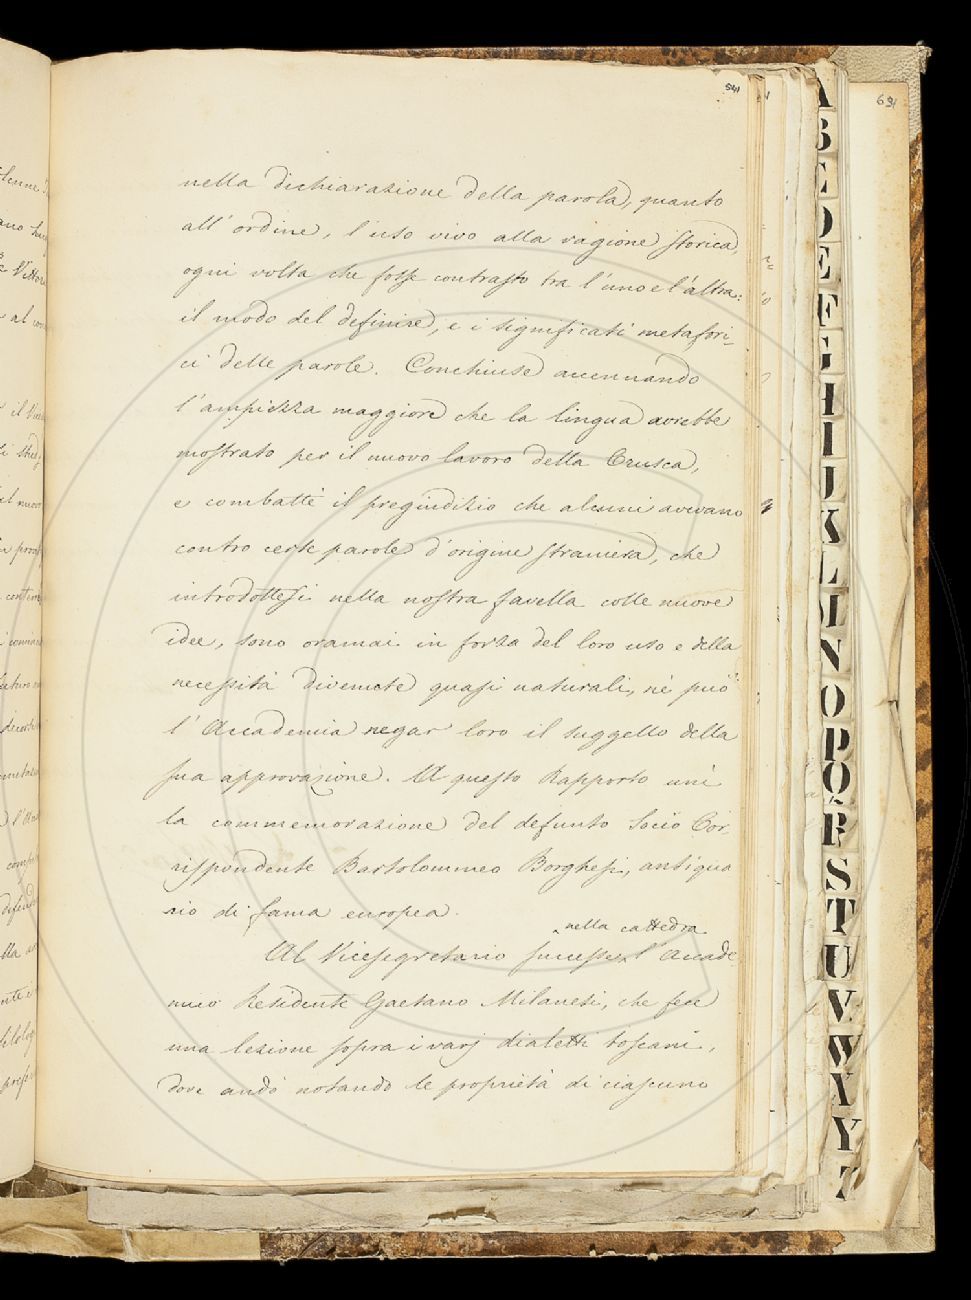 541
691
nella dichiarazione della parola, quanto
all' ordine, l'uso vivo alla ragione storica,
ogni volta che fosse contrasto tra l'uno e l'altra:
il modo del definire, e i significati metafori-
ci delle parole. Conchiuse accennando
l'ampiezza maggiore che la lingua avrebbe
mostrato per il nuovo lavoro della Crusca,
e combattè il pregiudizio che alcuni avevano
contro certe parole d'origine straniera, che
introdottesi nella nostra favella colle nuove
idee, sono oramai in forza del loro uso e della
necessità divenute quasi naturali, nè può
l'Accademia negar loro il suggello della
sua approvazione. A questo Rapporto unì
la commemorazione del defunto Socio Cor-
rispondente Bartolommeo Borghesi, antiqua
rio di fama europea.
nella cattedra
Al Vicesegretario successe l'Accade
mico Residente Gaetano Milanesi, che fece
una lezione sopra i varj dialetti toscani,
dove andò notando le proprietà di ciascuno
A
B
C
D
E
F
G
H
I
J
K
L
M
N
O
P
Q
R
S
T
U
V
W
X
Y
Z